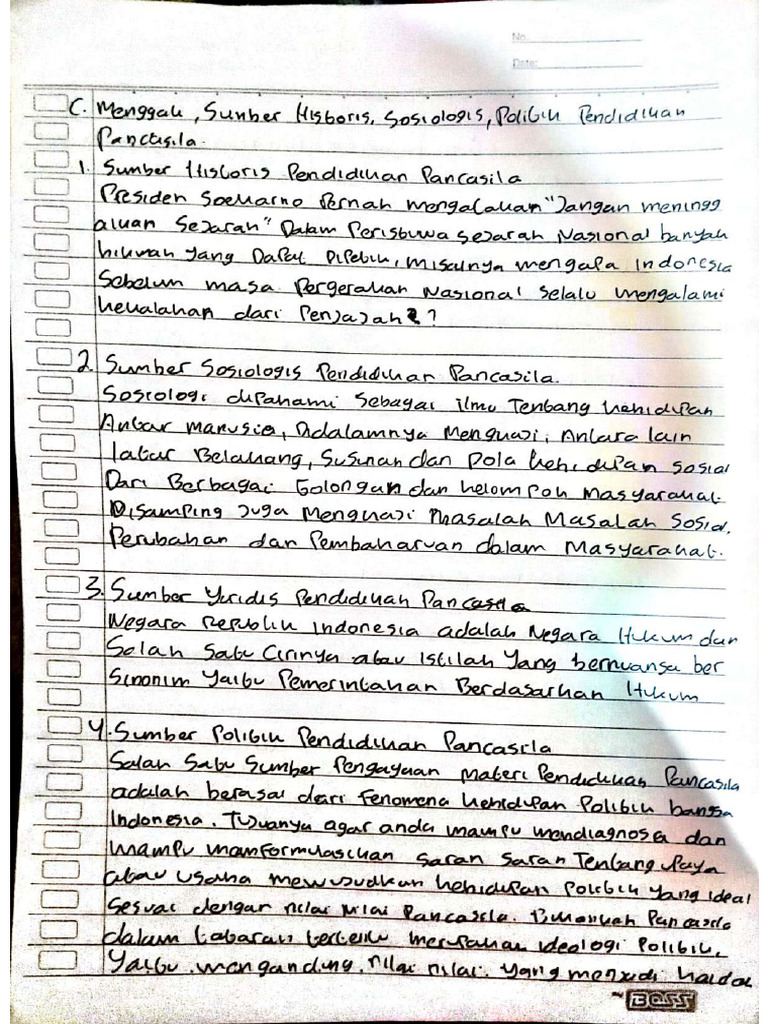 No.
Date:
C. Menggali, Sumber Historis, Sosiologis, Politik Pendidikan
Pancasila.
1. Sumber Historis Pendidikan Pancasila
Presiden Soekarno Pernah mengatakan "Jangan meningg
alkan Sejarah" Dalam Peristiwa sejarah Nasional banyak
hikmah yang Dapat Dipetik, misalnya mengapa Indonesia
Sebelum masa Pergerakan Nasional selalu mengalami
kekalahan dari Penjajah?
2. Sumber Sosiologis Pendidikan Pancasila.
Sosiologi dipahami Sebagai ilmu Tentang kehidupan
Antar manusia, Didalamnya Mengkaji, Antara lain
latar Belakang, Susunan dan Pola kehidupan sosial
Dari Berbagai Golongan dan kelompok masyarakat.
Disamping Juga Mengkaji Masalah Masalah Sosial,
Perubahan dan Pembaharuan dalam Masyarakat.
3. Sumber Yuridis Pendidikan Pancasila
Negara Republik Indonesia adalah Negara Hukum dan
Salah Satu Cirinya atau Istilah Yang bernuansa ber
Sinonim Yaitu Pemerintahan Berdasarkan Hukum
4. Sumber Politik Pendidikan Pancasila
Salah Satu Sumber Pengayaan materi Pendidikan Pancasila
adalah berasal dari Fenomena kehidupan Politik bangsa
Indonesia. Tujuanya agar anda mampu mendiagnosa dan
mampu mamformulasikan saran saran Tentang upaya
atau usaha mewujudkan kehidupan Politik yang ideal
Sesuai dengan nilai Nilai Pancasila. Bukankah Pancasila
dalam tataran tertentu merupakan ideologi Politik,
Yaitu mengandung nilai nilai yang menjadi kaidah
BOSS